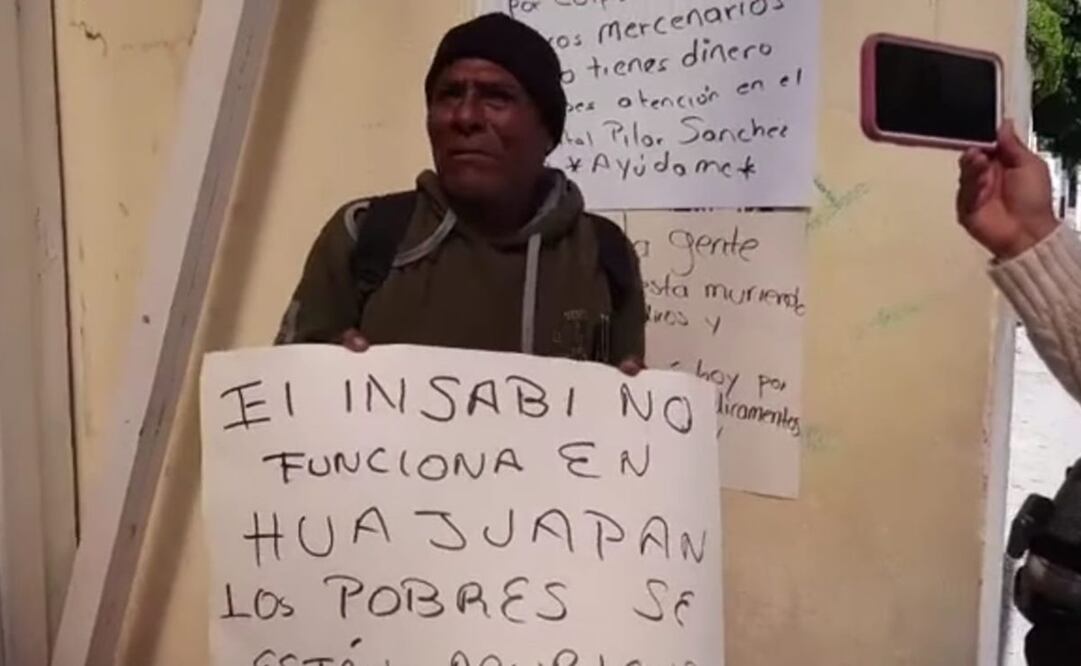 por culpa
cos mercenarios
o tienes dinero
bes atención en el
tal Pilar Sanchez
*Ayúdame*
a gente
esta muriendo
y
hoy por
dicamentos
El INSABI NO
FUNCIONA EN
HUAJUAPAN
LOS POBRES SE